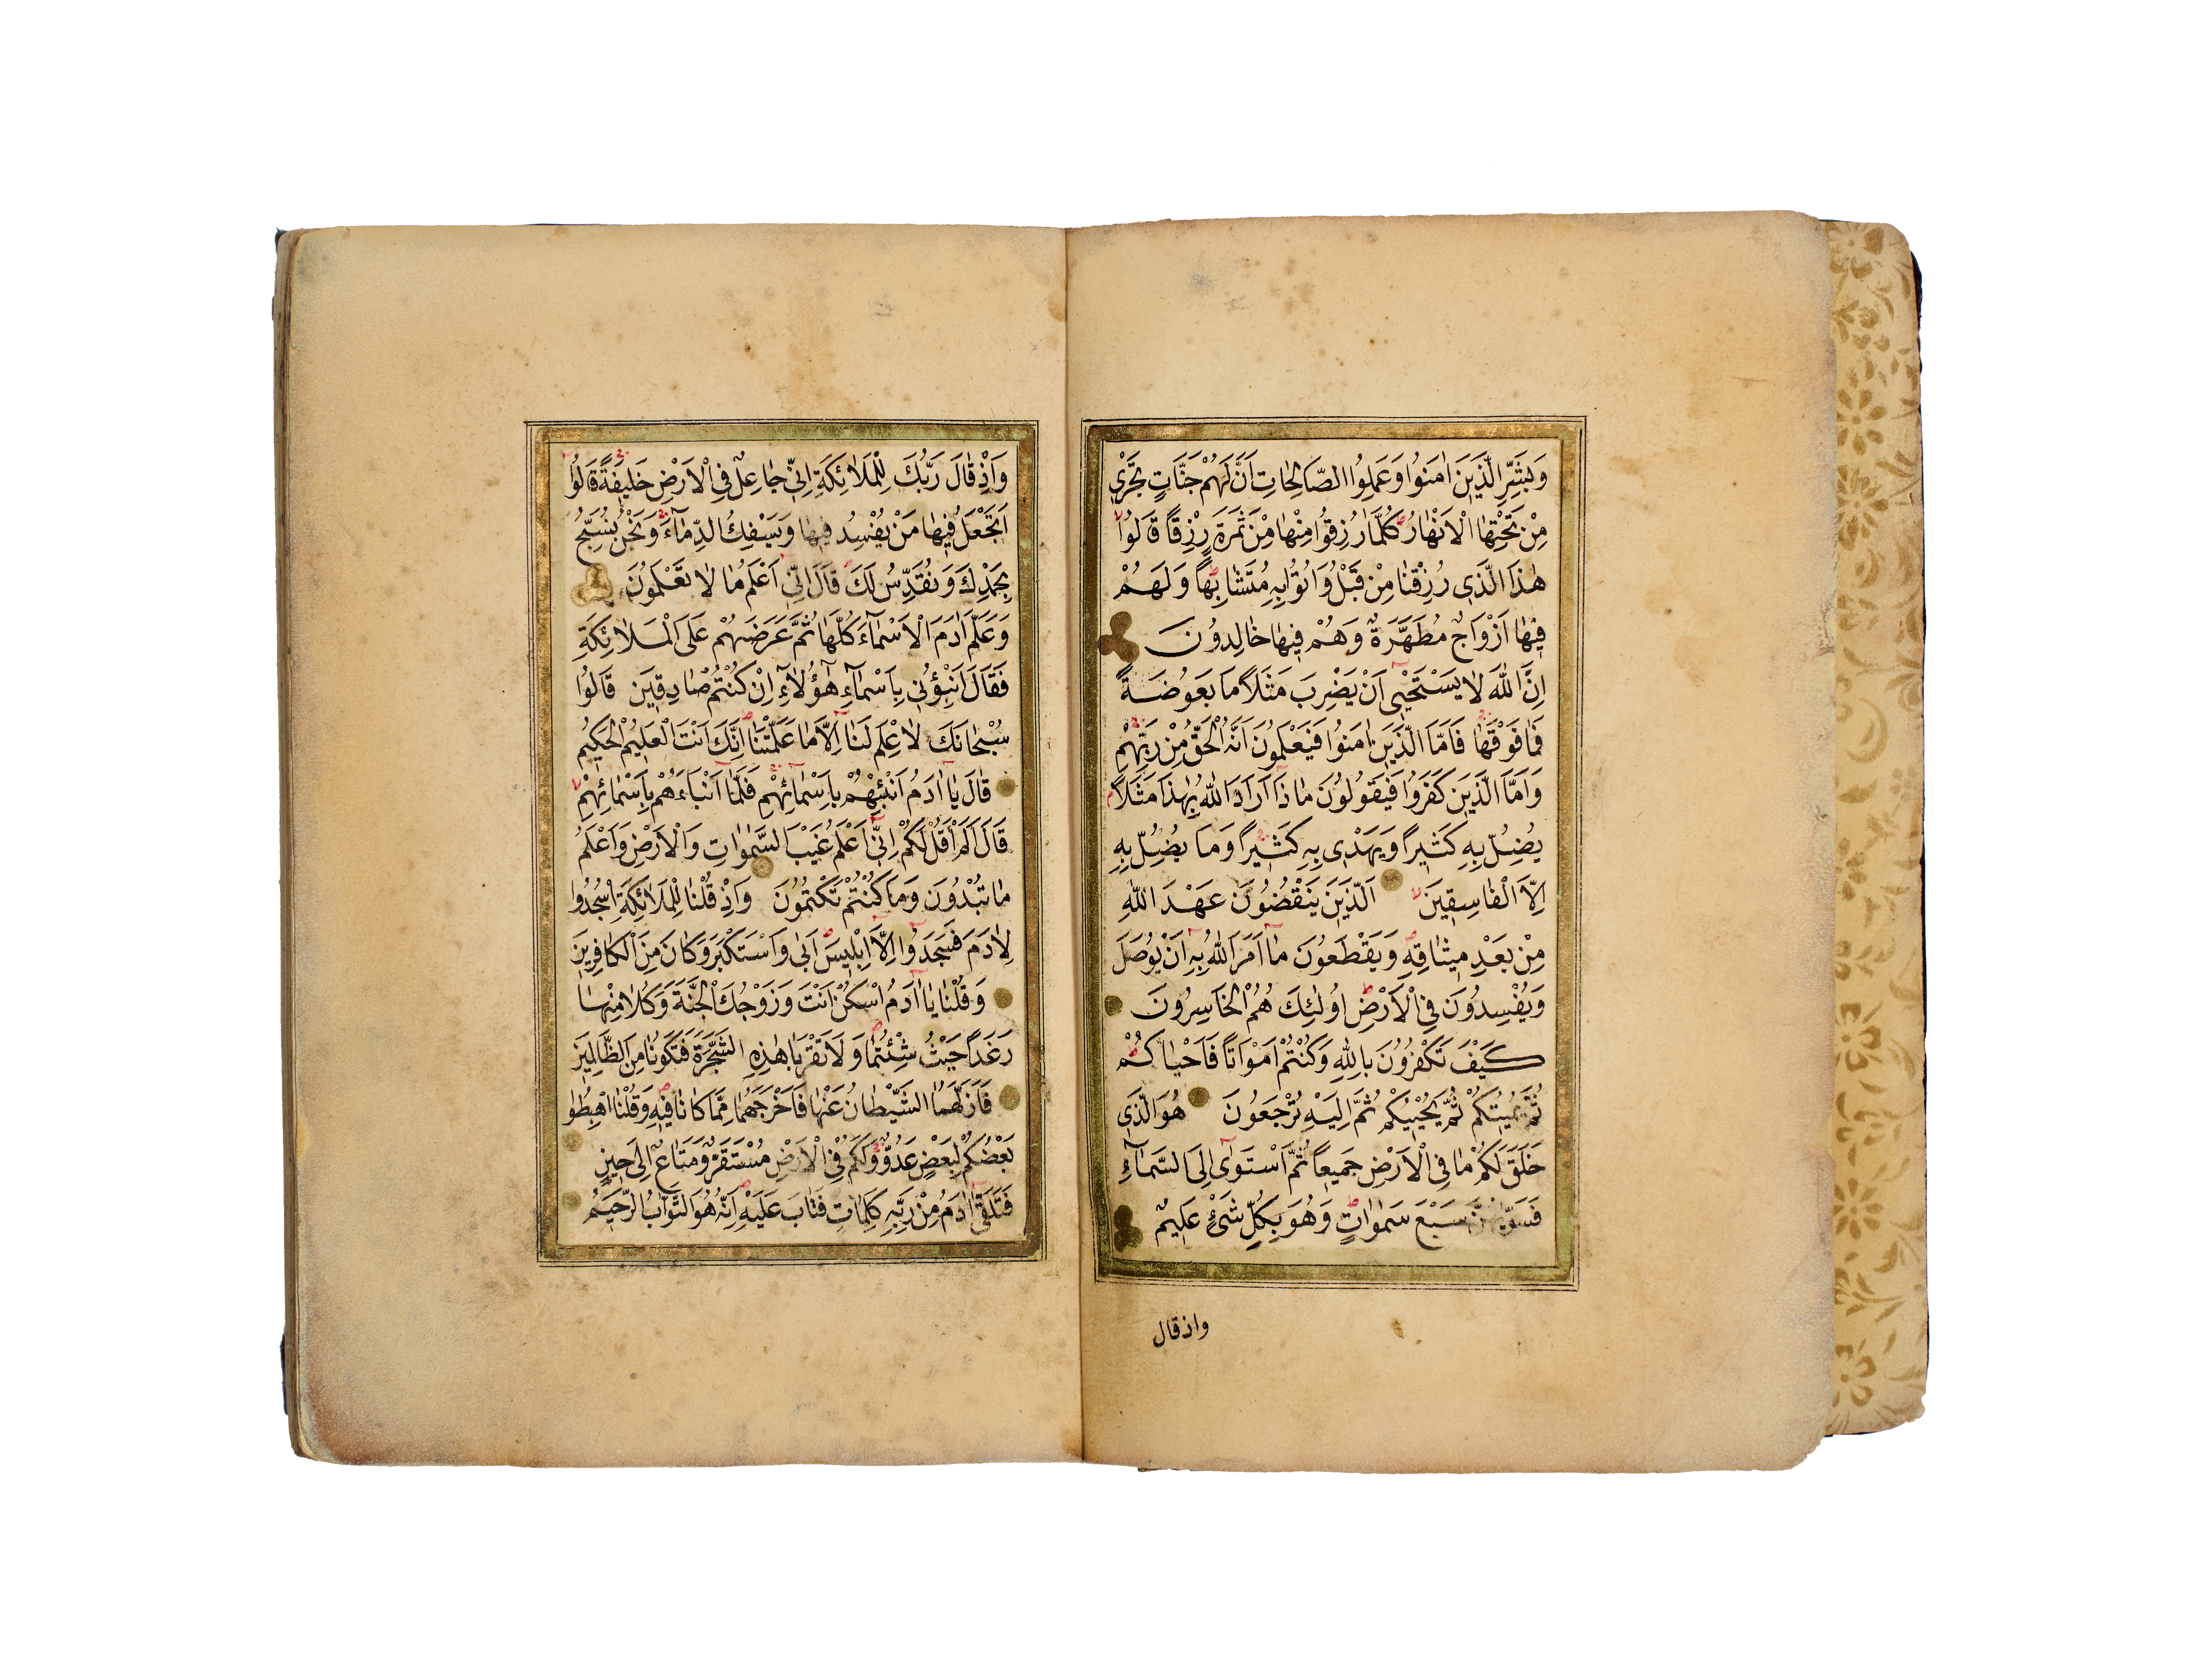 وَبَشِّرِ الَّذِينَ اٰمَنُوا وَعَمِلُوا الصَّالِحَاتِ اَنَّ لَهُمْ جَنَّاتٍ تَجْرِي
مِنْ تَحْتِهَا الْاَنْهَارُ كُلَّمَا رُزِقُوا مِنْهَا مِنْ ثَمَرَةٍ رِزْقًا قَالُوا
هٰذَا الَّذِي رُزِقْنَا مِنْ قَبْلُ وَاُتُوا بِهِ مُتَشَابِهًا وَلَهُمْ
فِيهَا اَزْوَاجٌ مُطَهَّرَةٌ وَهُمْ فِيهَا خَالِدُونَ
اِنَّ اللّٰهَ لَا يَسْتَحْيِى اَنْ يَضْرِبَ مَثَلًا مَا بَعُوضَةً
فَمَا فَوْقَهَا فَاَمَّا الَّذِينَ اٰمَنُوا فَيَعْلَمُونَ اَنَّهُ الْحَقُّ مِنْ رَبِّهِمْ
وَاَمَّا الَّذِينَ كَفَرُوا فَيَقُولُونَ مَاذَا اَرَادَ اللّٰهُ بِهٰذَا مَثَلًا
يُضِلُّ بِهِ كَثِيرًا وَيَهْدِى بِهِ كَثِيرًا وَمَا يُضِلُّ بِهِ
اِلَّا الْفَاسِقِينَ اَلَّذِينَ يَنْقُضُونَ عَهْدَ اللّٰهِ
مِنْ بَعْدِ مِيثَاقِهِ وَيَقْطَعُونَ مَا اَمَرَ اللّٰهُ بِهِ اَنْ يُوصَلَ
وَيُفْسِدُونَ فِي الْاَرْضِ اُولٰئِكَ هُمُ الْخَاسِرُونَ
كَيْفَ تَكْفُرُونَ بِاللّٰهِ وَكُنْتُمْ اَمْوَاتًا فَاَحْيَاكُمْ
ثُمَّ يُمِيتُكُمْ ثُمَّ يُحْيِيكُمْ ثُمَّ اِلَيْهِ تُرْجَعُونَ هُوَ الَّذِي
خَلَقَ لَكُمْ مَا فِي الْاَرْضِ جَمِيعًا ثُمَّ اسْتَوٰى اِلَى السَّمَآءِ
فَسَوّٰيهُنَّ سَبْعَ سَمٰوَاتٍ وَهُوَ بِكُلِّ شَىْءٍ عَلِيمٌ
واذ قال
وَاِذْ قَالَ رَبُّكَ لِلْمَلَائِكَةِ اِنِّي جَاعِلٌ فِي الْاَرْضِ خَلِيفَةً قَالُوا
اَتَجْعَلُ فِيهَا مَنْ يُفْسِدُ فِيهَا وَيَسْفِكُ الدِّمَآءَ وَنَحْنُ نُسَبِّحُ
بِحَمْدِكَ وَنُقَدِّسُ لَكَ قَالَ اِنِّي اَعْلَمُ مَا لَا تَعْلَمُونَ
وَعَلَّمَ اٰدَمَ الْاَسْمَآءَ كُلَّهَا ثُمَّ عَرَضَهُمْ عَلَى الْمَلَائِكَةِ
فَقَالَ اَنْبِؤُنِي بِاَسْمَآءِ هٰؤُلَآءِ اِنْ كُنْتُمْ صَادِقِينَ قَالُوا
سُبْحَانَكَ لَا عِلْمَ لَنَا اِلَّا مَا عَلَّمْتَنَا اِنَّكَ اَنْتَ الْعَلِيمُ الْحَكِيمُ
قَالَ يَا اٰدَمُ اَنْبِئْهُمْ بِاَسْمَائِهِمْ فَلَمَّا اَنْبَاَهُمْ بِاَسْمَائِهِمْ
قَالَ اَلَمْ اَقُلْ لَكُمْ اِنِّي اَعْلَمُ غَيْبَ السَّمٰوَاتِ وَالْاَرْضِ وَاَعْلَمُ
مَا تُبْدُونَ وَمَا كُنْتُمْ تَكْتُمُونَ وَاِذْ قُلْنَا لِلْمَلَائِكَةِ اسْجُدُوا
لِاٰدَمَ فَسَجَدُوا اِلَّا اِبْلِيسَ اَبٰى وَاسْتَكْبَرَ وَكَانَ مِنَ الْكَافِرِينَ
وَقُلْنَا يَا اٰدَمُ اسْكُنْ اَنْتَ وَزَوْجُكَ الْجَنَّةَ وَكُلَا مِنْهَا
رَغَدًا حَيْثُ شِئْتُمَا وَلَا تَقْرَبَا هٰذِهِ الشَّجَرَةَ فَتَكُونَا مِنَ الظَّالِمِينَ
فَاَزَلَّهُمَا الشَّيْطَانُ عَنْهَا فَاَخْرَجَهُمَا مِمَّا كَانَا فِيهِ وَقُلْنَا اهْبِطُوا
بَعْضُكُمْ لِبَعْضٍ عَدُوٌّ وَلَكُمْ فِي الْاَرْضِ مُسْتَقَرٌّ وَمَتَاعٌ اِلَى حِينٍ
فَتَلَقّٰى اٰدَمُ مِنْ رَبِّهِ كَلِمَاتٍ فَتَابَ عَلَيْهِ اِنَّهُ هُوَ التَّوَّابُ الرَّحِيمُ